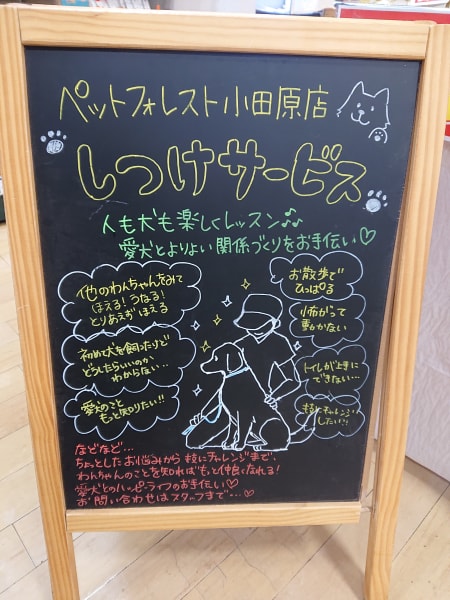 ペットフォレスト小田原店
しつけサービス
人も犬も楽しくレッスン♪♪
愛犬とよりよい関係づくりをお手伝い♡
他のわんちゃんをみて
ほえる！うなる！
とりあえず ほえる
初めて犬を飼ったけど
どうしたらいいのか
わからない…
愛犬のこと
もっと知りたい!!
お散歩で
ひっぱる
怖がって
動かない
トイレが上手に
できない…
技にチャレンジ
したい!!
などなど…
ちょっとしたお悩みから 技にチャレンジまで、
わんちゃんのことを知ればもっと仲良くなれる！
愛犬とのハッピーライフのお手伝い♡
お問い合わせはスタッフまで…♡